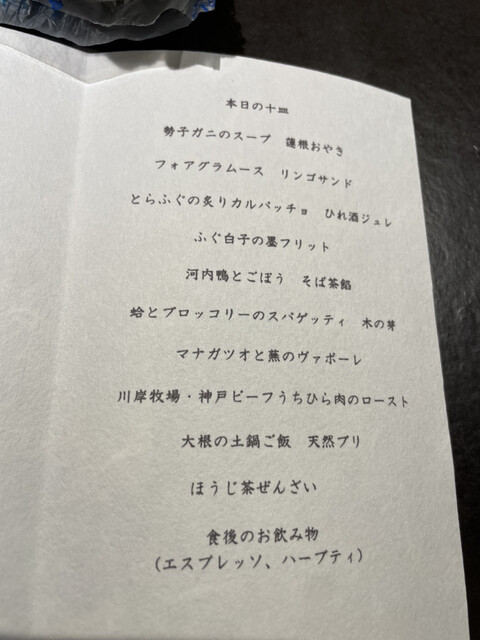 本日の十皿
勢子ガニのスープ　蓮根おやき
フォアグラムース　リンゴサンド
とらふぐの炙りカルパッチョ　ひれ酒ジュレ
ふぐ白子の墨フリット
河内鴨とごぼう　そば茶餡
蛤とブロッコリーのスパゲッティ　木の芽
マナガツオと蕪のヴァポーレ
川岸牧場・神戸ビーフうちひら肉のロースト
大根の土鍋ご飯　天然ブリ
ほうじ茶ぜんざい
食後のお飲み物
（エスプレッソ、ハーブティ）